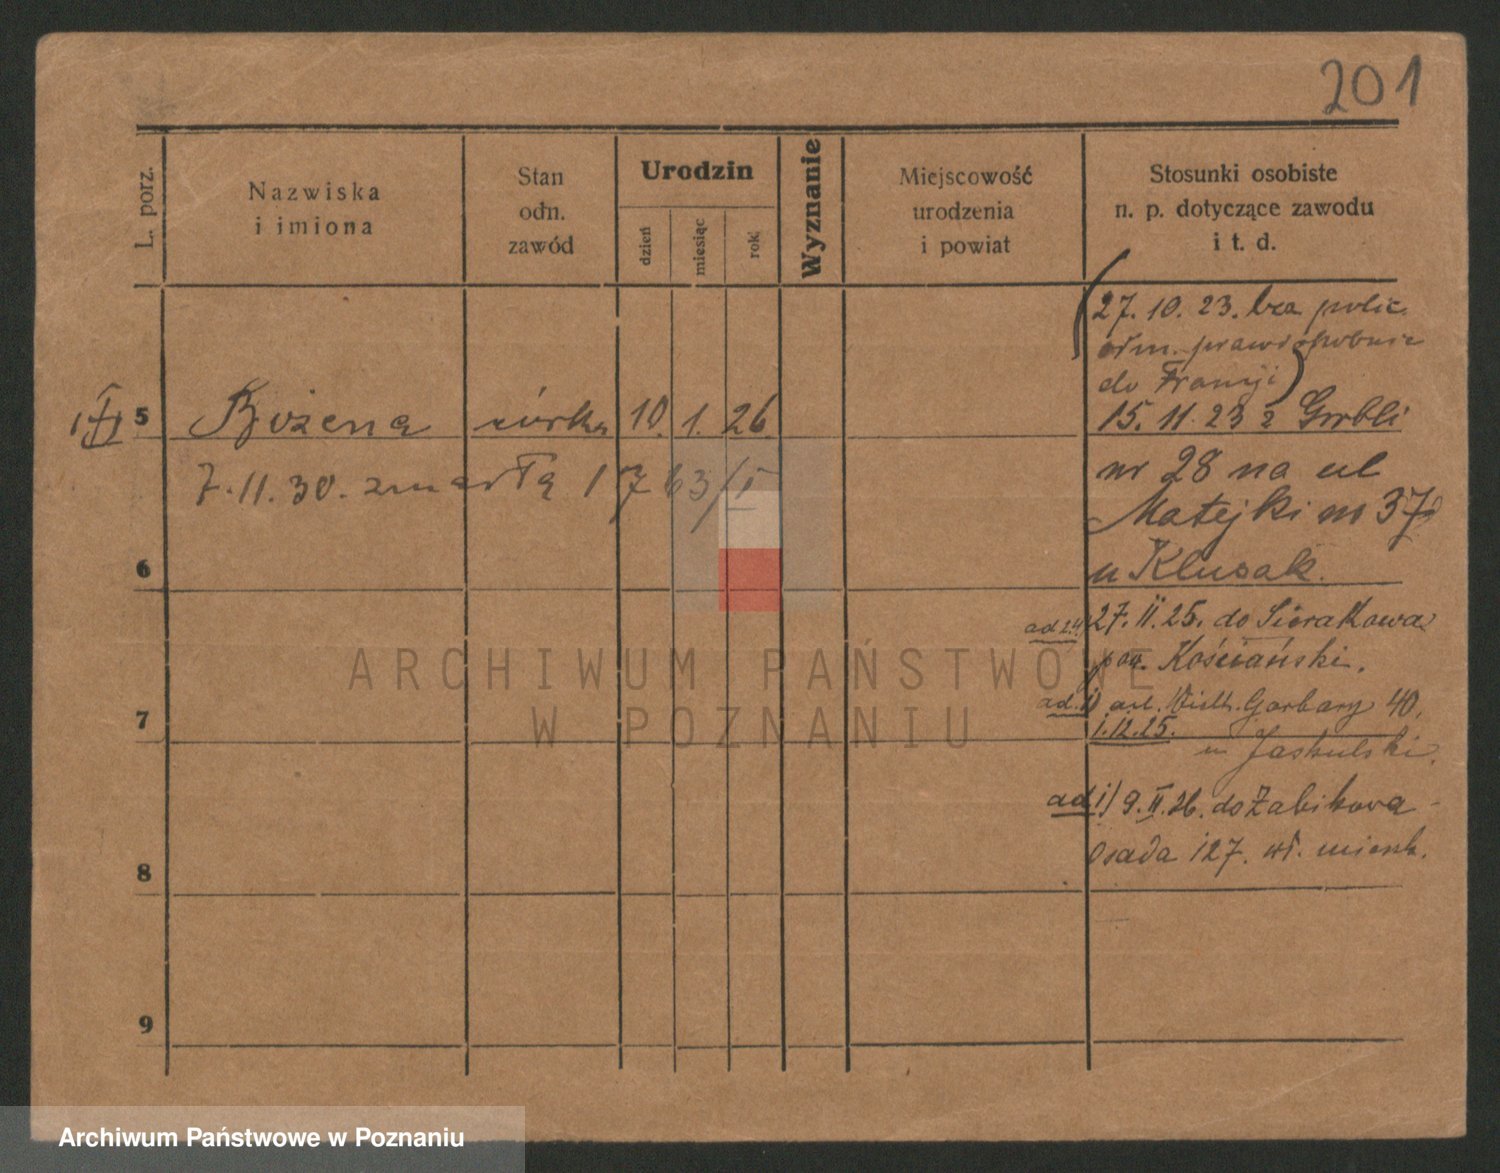 201
L. porz.
Nazwiska
i imiona
Stan
odn.
zawód
Urodzin
dzień
miesiąc
rok
Wyznanie
Miejscowość
urodzenia
i powiat
Stosunki osobiste
n. p. dotyczące zawodu
i t. d.
(27. 10. 23. bez polic.
odm. prawdopobnie
do Francji)
5 Bożena córka 10. 1. 26
15. 11. 23 z Grobli
7. 11. 30. zmarła 1763/I
nr 28 na ul
Matejki nr 37
u Klusak.
6
ad 2.4) 27. II. 25. do Sierakowa
pow. Kościański.
ad. 1) Garbary 40,
7
1.12.25. u Jaskulski.
ad 1) 9. II. 26. do Żabikowa
Osada 127. wł. mieszk.
8
9
ARCHIWUM PAŃSTWOWE
W POZNANIU
Archiwum Państwowe w Poznaniu